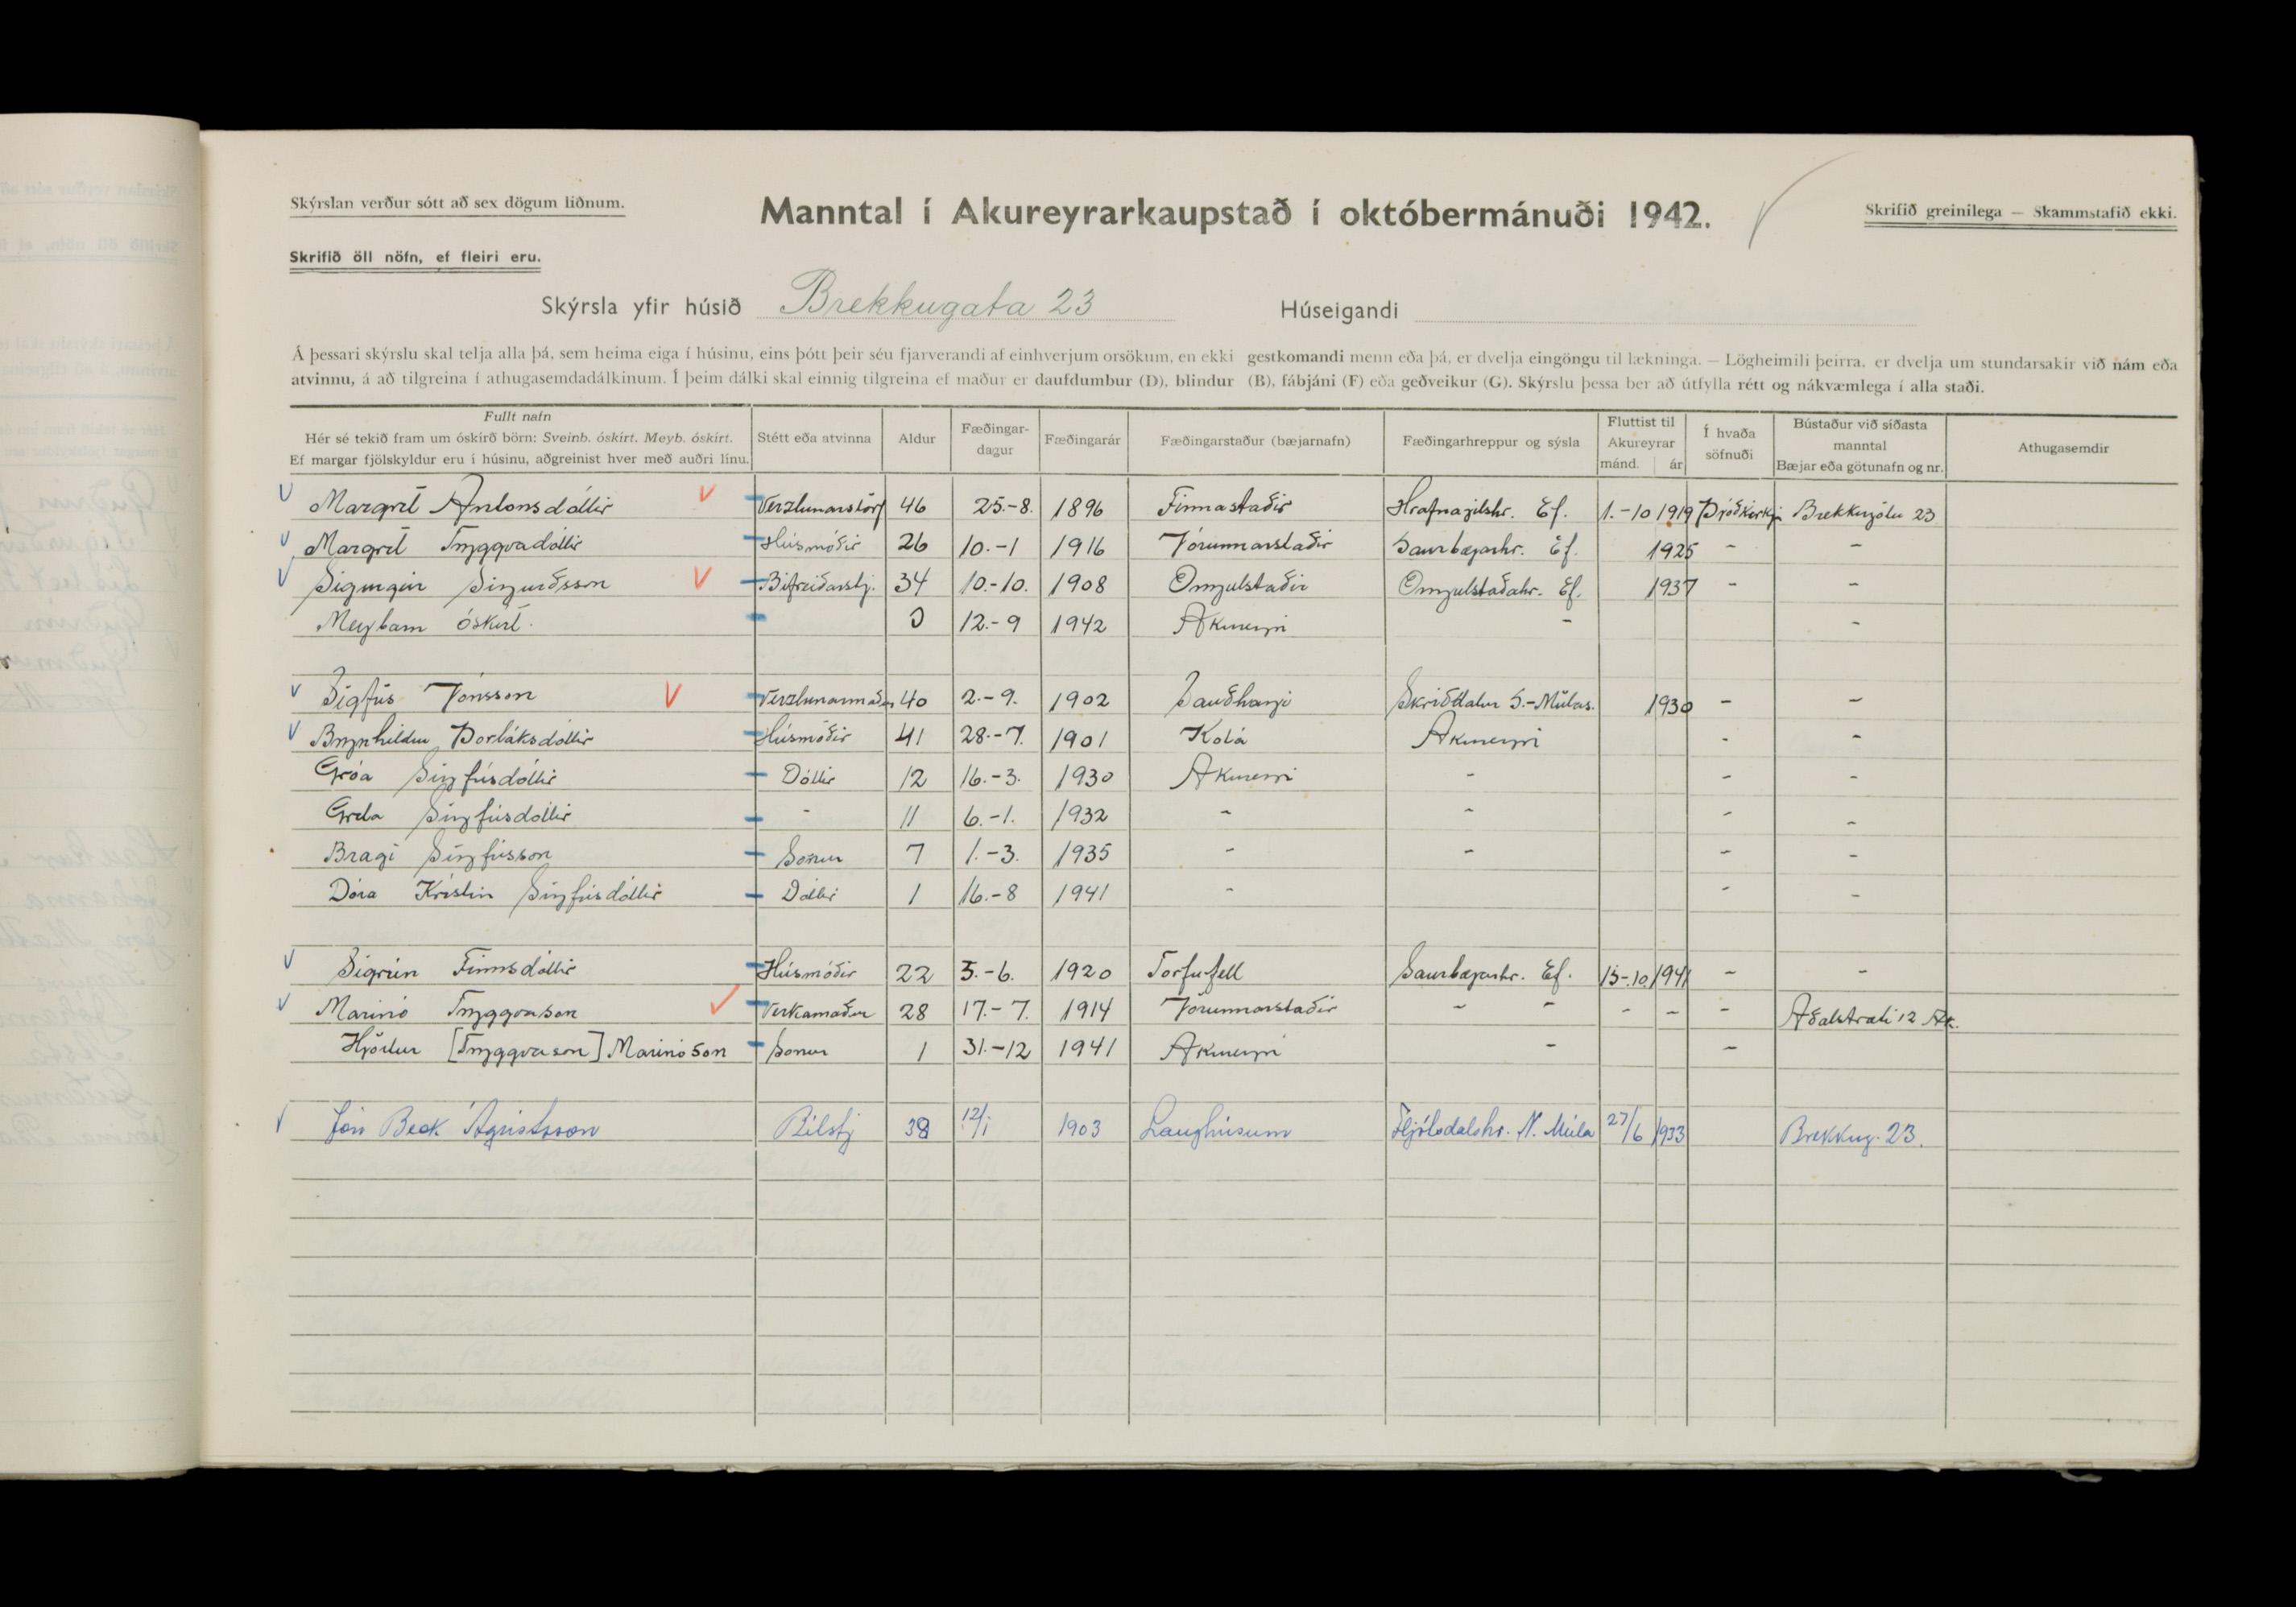 Skýrslan verður sótt að sex dögum liðnum.
Manntal í Akureyrarkaupstað í októbermánuði 1942.
Skrifið greinilega — Skammstafið ekki.
Skrifið öll nöfn, ef fleiri eru.
Skýrsla yfir húsið Brekkugata 23 Húseigandi
Á þessari skýrslu skal telja alla þá, sem heima eiga í húsinu, eins þótt þeir séu fjarverandi af einhverjum orsökum, en ekki gestkomandi menn eða þá, er dvelja eingöngu til lækninga. — Lögheimili þeirra, er dvelja um stundarsakir við nám eða
atvinnu, á að tilgreina í athugasemdadálkinum. Í þeim dálki skal einnig tilgreina ef maður er daufdumbur (D), blindur (B), fábjáni (F) eða geðveikur (G). Skýrslu þessa ber að útfylla rétt og nákvæmlega í alla staði.
Fullt nafn
Hér sé tekið fram um óskírð börn: Sveinb. óskírt. Meyb. óskírt.
Ef margar fjölskyldur eru í húsinu, aðgreinist hver með auðri línu.
Stétt eða atvinna
Aldur
Fæðingar-
dagur
Fæðingarár
Fæðingarstaður (bæjarnafn)
Fæðingarhreppur og sýsla
Fluttist til
Akureyrar
mánd. ár
Í hvaða
söfnuði
Bústaður við síðasta
manntal
Bæjar eða götunafn og nr.
Athugasemdir
Margrét Antonsdóttir Verzlunarstörf 46 25.-8. 1896 Finnastaðir Hrafnagilshr. Ef. 1.-10 1919 Þjóðkirkj. Brekkugötu 23
Margrét Tryggvadóttir Húsmóðir 26 10.-1 1916 Þórunnarstaðir Saurbæjarhr. Ef. 1925 - -
Sigurgeir Sigurðsson Bifreiðarstj. 34 10.-10. 1908 Öngulstaðir Öngulstaðahr. Ef. 1937 - -
Meybarn óskírt. 0 12.-9 1942 Akureyri - -
Sigfús Jónsson Verzlunarmaður 40 2.-9. 1902 Sauðhagi Skriðdalur S.-Múlas. 1930 - -
Brynhildur Þorláksdóttir Húsmóðir 41 28.-7. 1901 Kotá Akureyri - -
Gróa Sigfúsdóttir Dóttir 12 16.-3. 1930 Akureyri - - -
Greta Sigfúsdóttir - 11 6.-1. 1932 - - - -
Bragi Sigfússon Sonur 7 1.-3. 1935 - - - -
Dóra Kristín Sigfúsdóttir Dóttir 1 16.-8 1941 - - -
Sigrún Finnsdóttir Húsmóðir 22 5.-6. 1920 Torfufell Saurbæjarhr. Ef. 15-.10 1941 - -
Marinó Tryggvason Verkamaður 28 17.-7. 1914 Þórunnarstaðir - - - - - Aðalstræti 12 Ak.
Hjörtur [Tryggvason] Marinósson Sonur 1 31.-12 1941 Akureyri - -
Jón Beck Ágústsson Bílstj 38 12/1 1903 Langhúsum Fljótsdalshr. N. Múla 27/6 1933 Brekkug. 23.